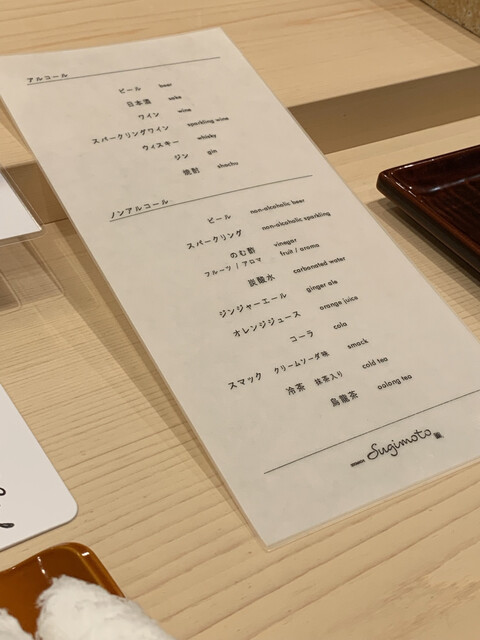 アルコール
ビール beer
日本酒 sake
ワイン wine
スパークリングワイン sparkling wine
ウィスキー whisky
ジン gin
焼酎 shochu
ノンアルコール
ビール non-alcoholic beer
スパークリング non-alcoholic sparkling
のむ酢 vinegar
フルーツ / アロマ fruit / aroma
炭酸水 carbonated water
ジンジャーエール ginger ale
オレンジジュース orange juice
コーラ cola
スマック クリームソーダ味 smack
冷茶 抹茶入り cold tea
烏龍茶 oolong tea
Sugimoto